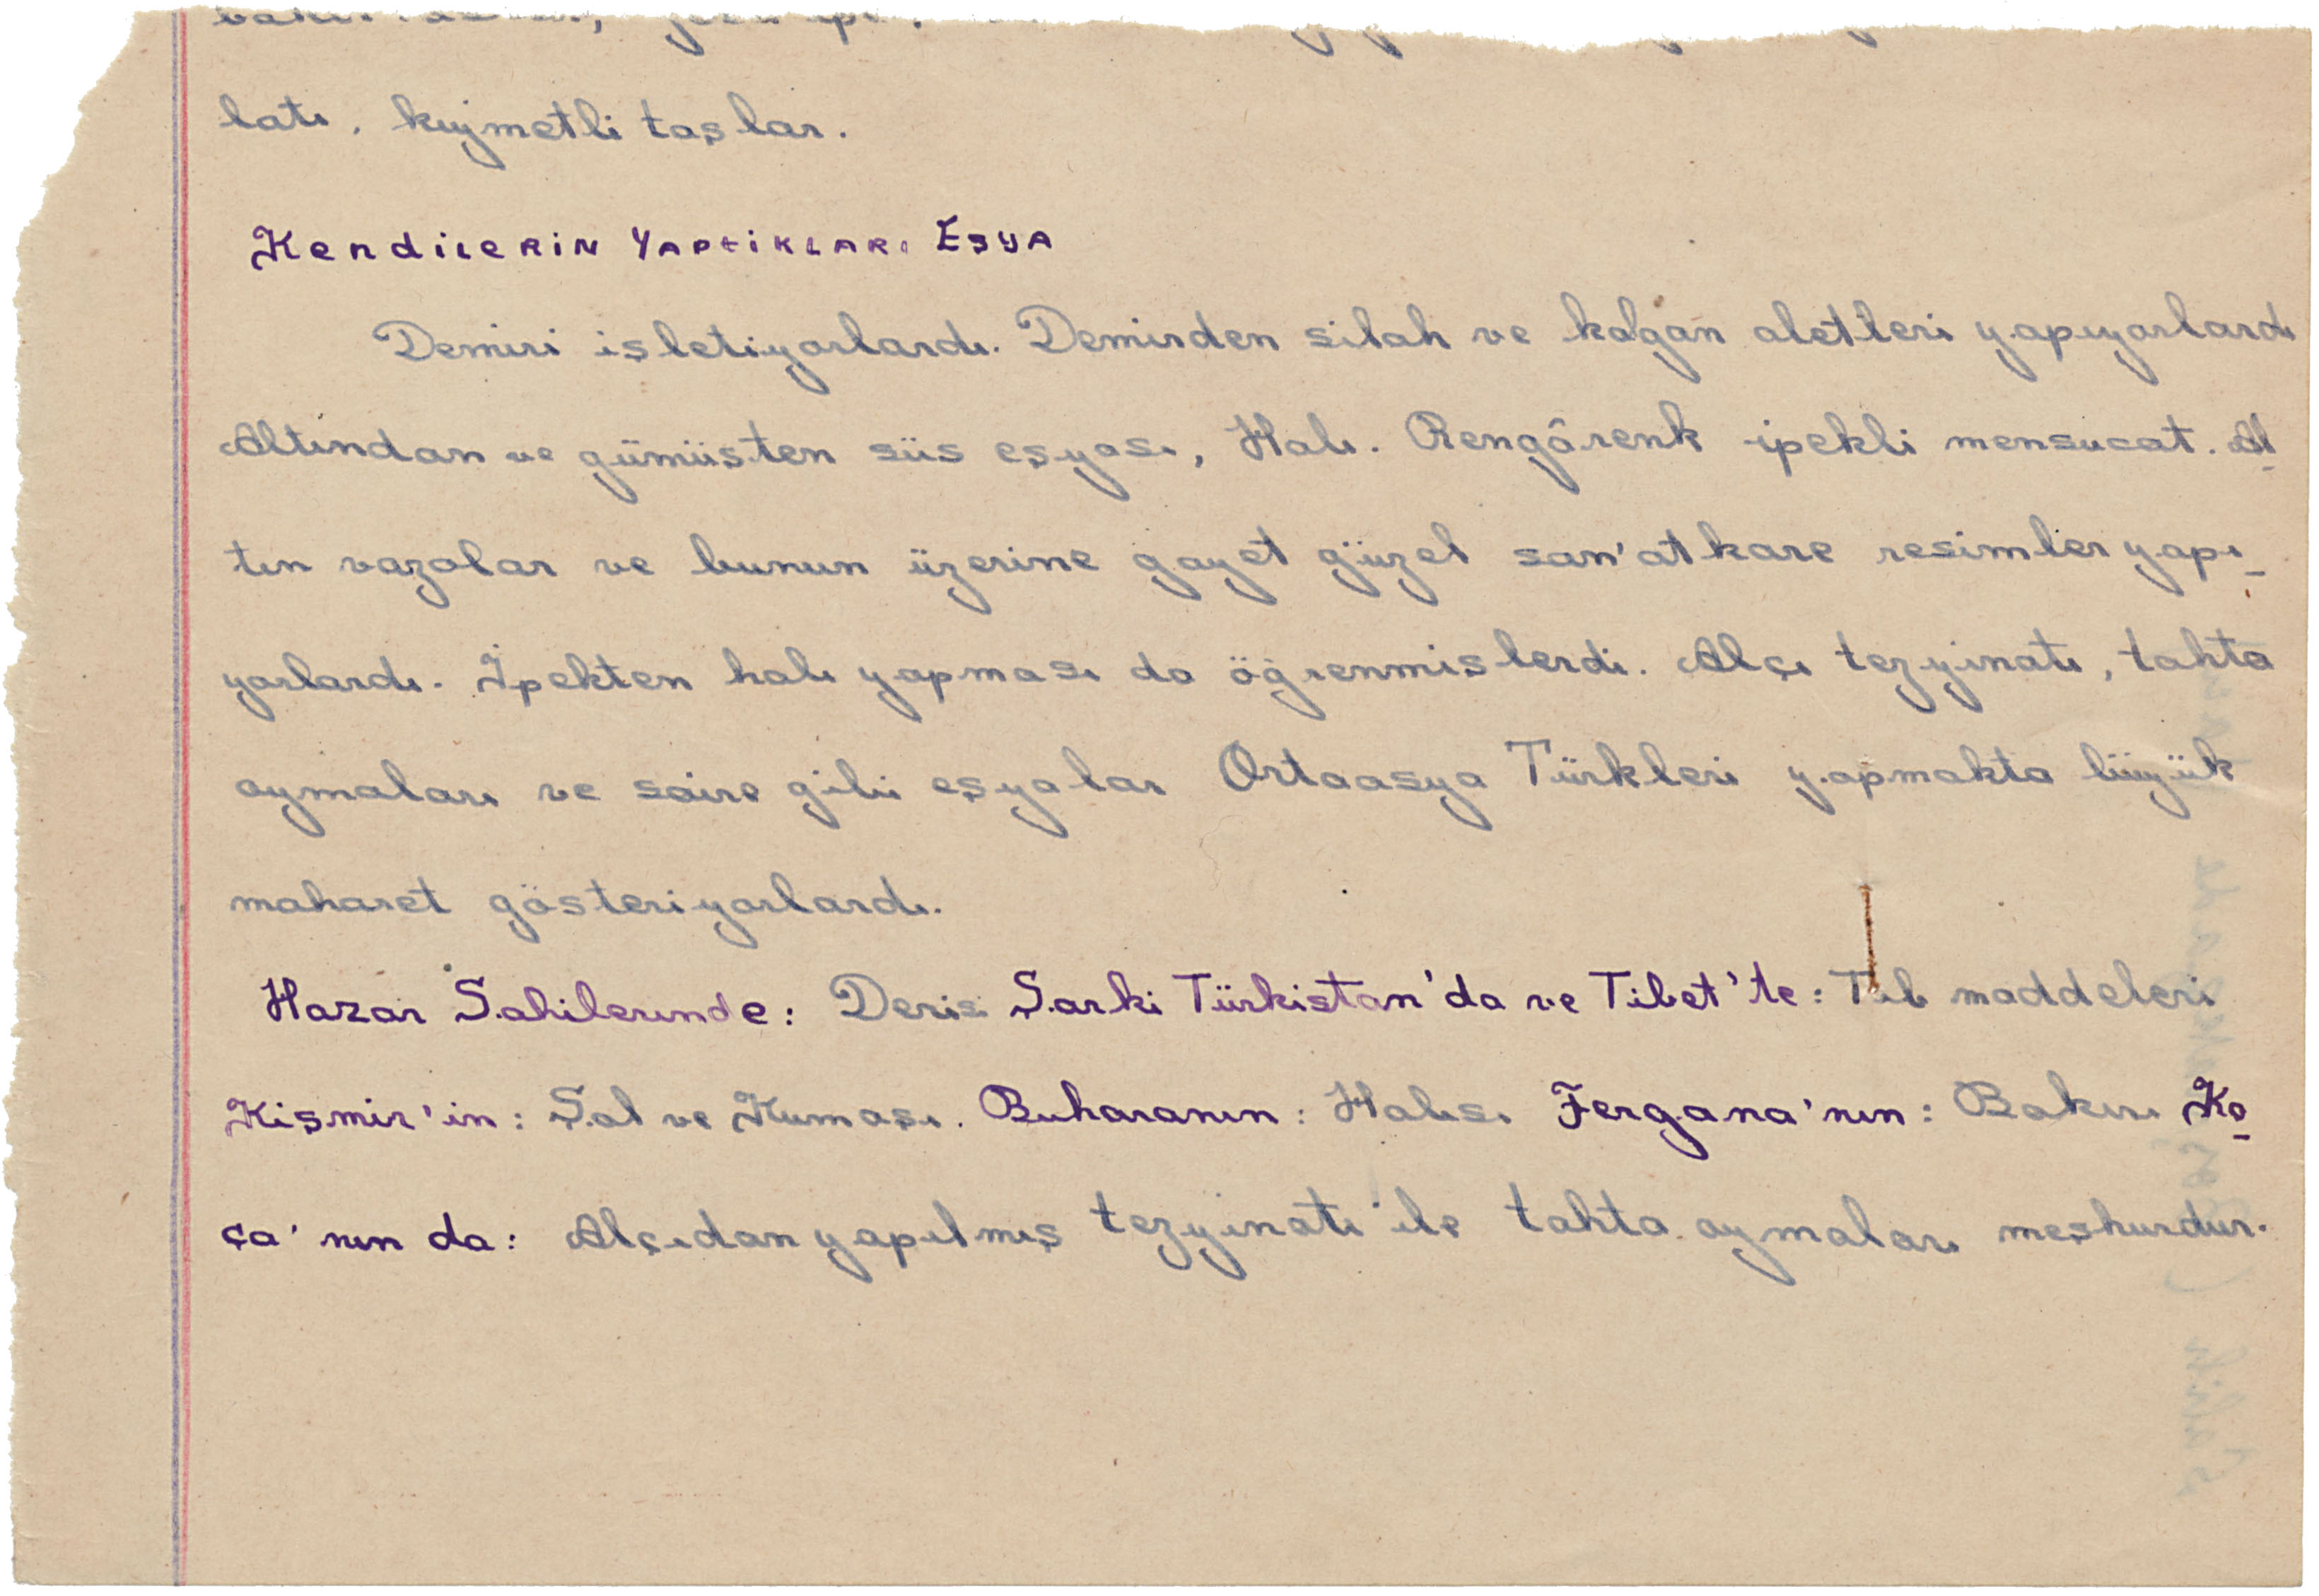 latı, kıymetli taşlar.
Kendilerin Yaptıkları Eşya
Demiri işletiyorlardı. Demirden silah ve kalgan aletleri yapıyorlardı
Altından ve gümüşten süs eşyası, Halı. Rengârenk ipekli mensucat. Al
tın vazolar ve bunun üzerine gayet güzel san'atkare resimler yapı
yorlardı. İpekten halı yapması da öğrenmişlerdi. Alçı tezyinatı, tahta
oymaları ve saire gibi eşyalar Ortaasya Türkleri yapmakta büyük
maharet gösteriyorlardı.
Hazar Sahilerınde: Derisi Şarki Türkistan'da ve Tibet'te: Tıb maddeleri
Kişmir'in: Şal ve Kumaşı. Buharanın: Halısı Fergana'nın: Bakırı Ko
ça'nın da: Alçıdan yapılmış tezyinatı ile tahta oymaları meşhurdur.